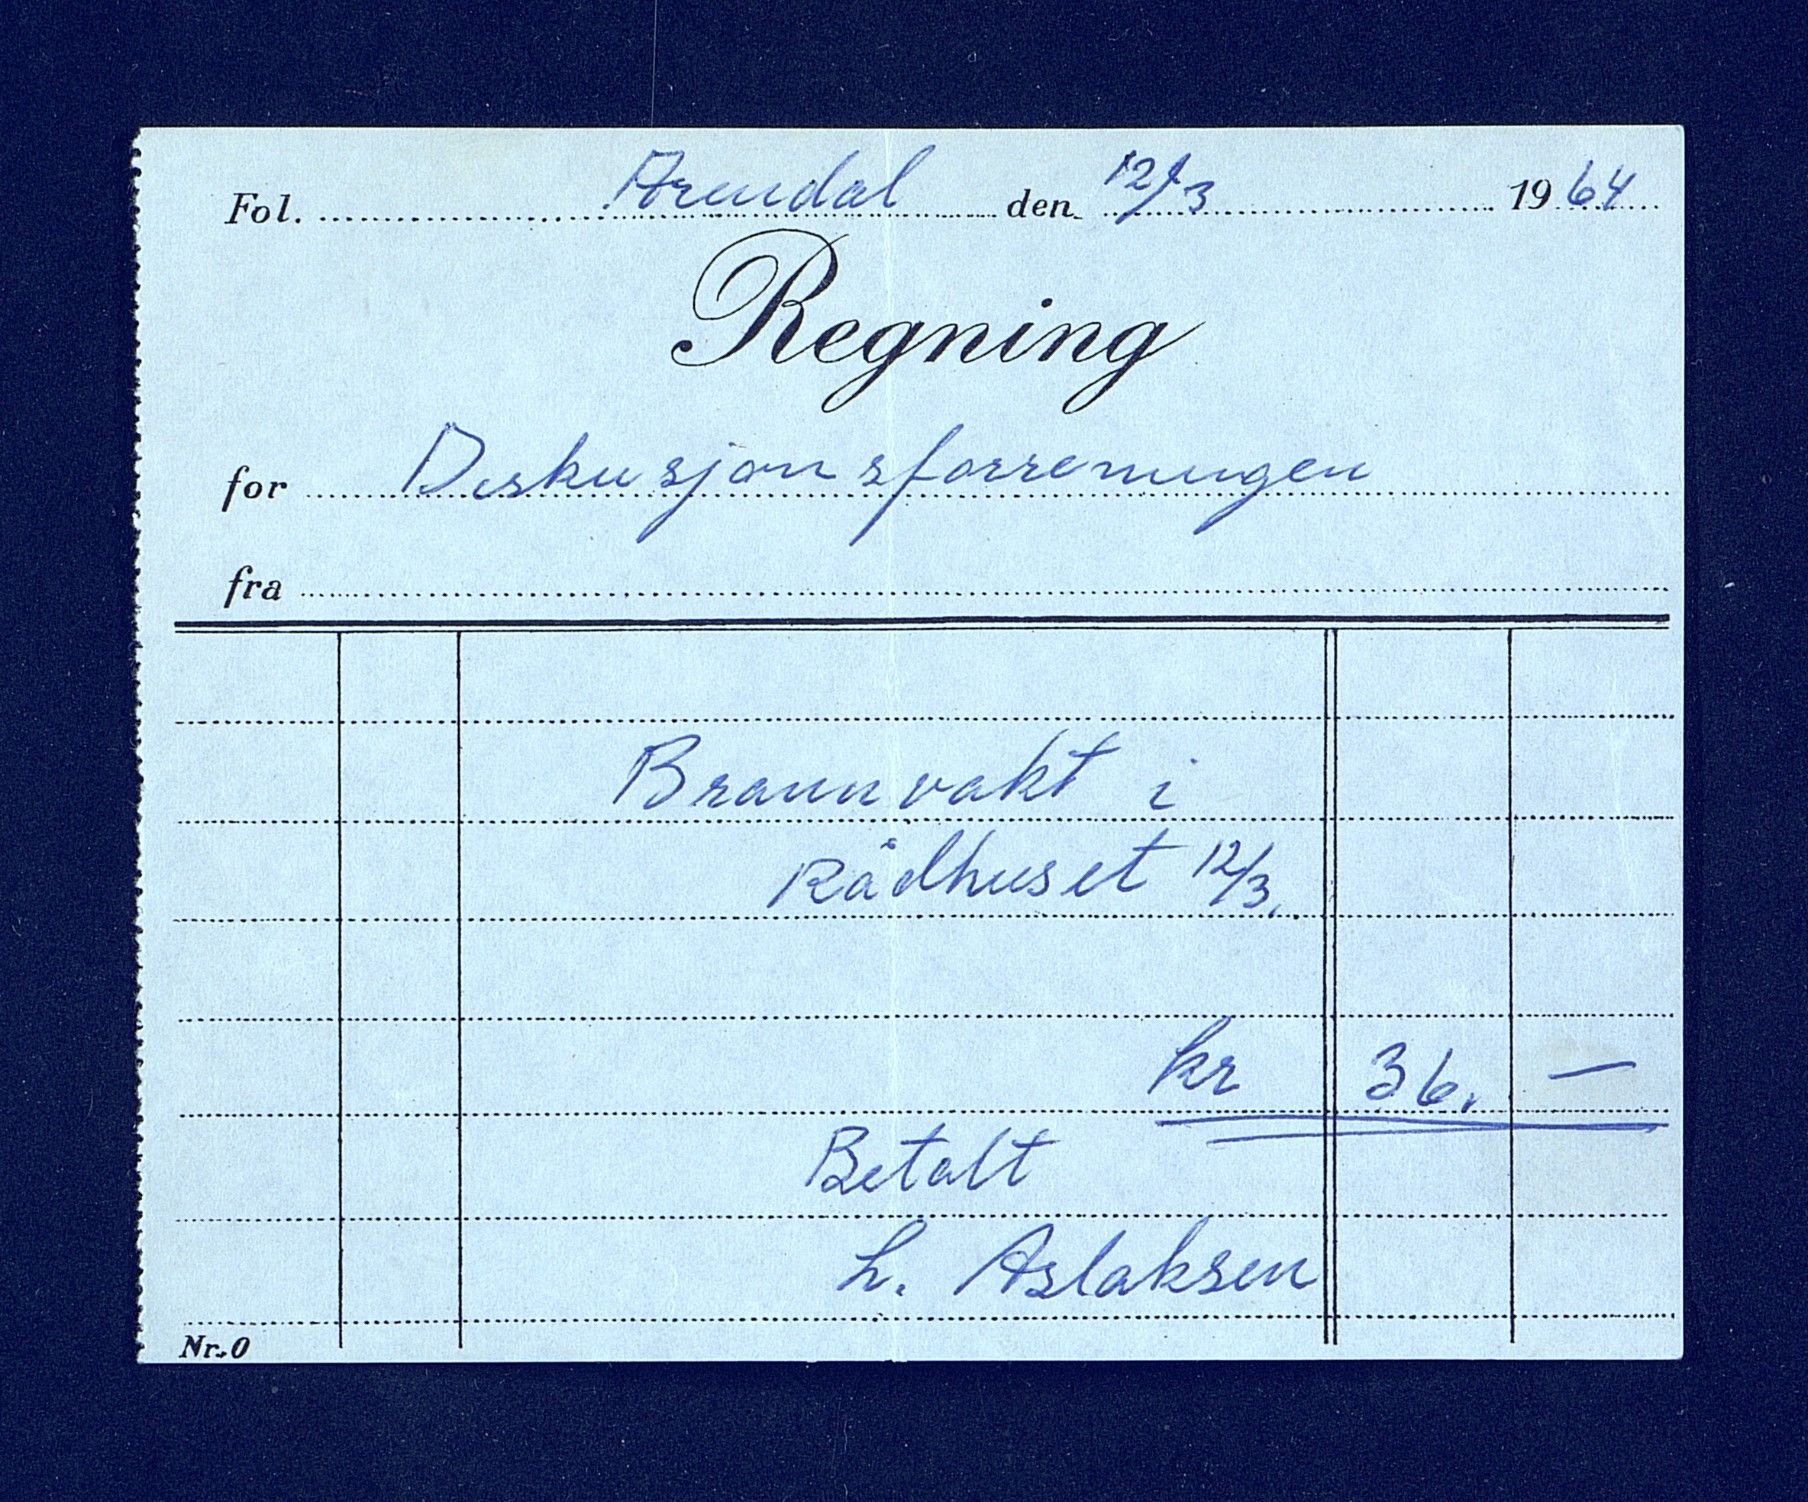 Fol. Arendal den 12/3 1964
Regning
for Diskusjonsforreningen
fra
Brannvakt i
Rådhuset 12/3.
kr 36. —
Betalt
L. Aslaksen
Nr. 0